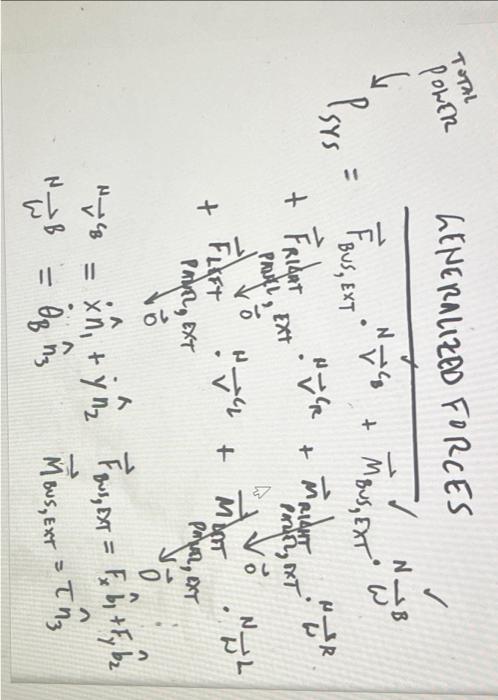 GENERALIZED FORCES
TOTAL
POWER
P_SYS = F⃗_BUS, EXT · ᴺv⃗^C_B + M⃗_BUS, EXT · ᴺω⃗^B
+ F⃗_RIGHT PANEL, EXT · ᴺv⃗^C_R + M⃗_RIGHT PANEL, EXT · ᴺω⃗^R
0⃗ 0⃗
+ F⃗_LEFT PANEL, EXT · ᴺv⃗^C_L + M⃗_LEFT PANEL, EXT · ᴺω⃗^L
0⃗ 0⃗
ᴺv⃗^C_B = ẋ n̂₁ + ẏ n̂₂ F⃗_BUS, EXT = F_x b̂₁ + F_y b̂₂
ᴺω⃗^B = θ̇_B n̂₃ M⃗_BUS, EXT = τ n̂₃